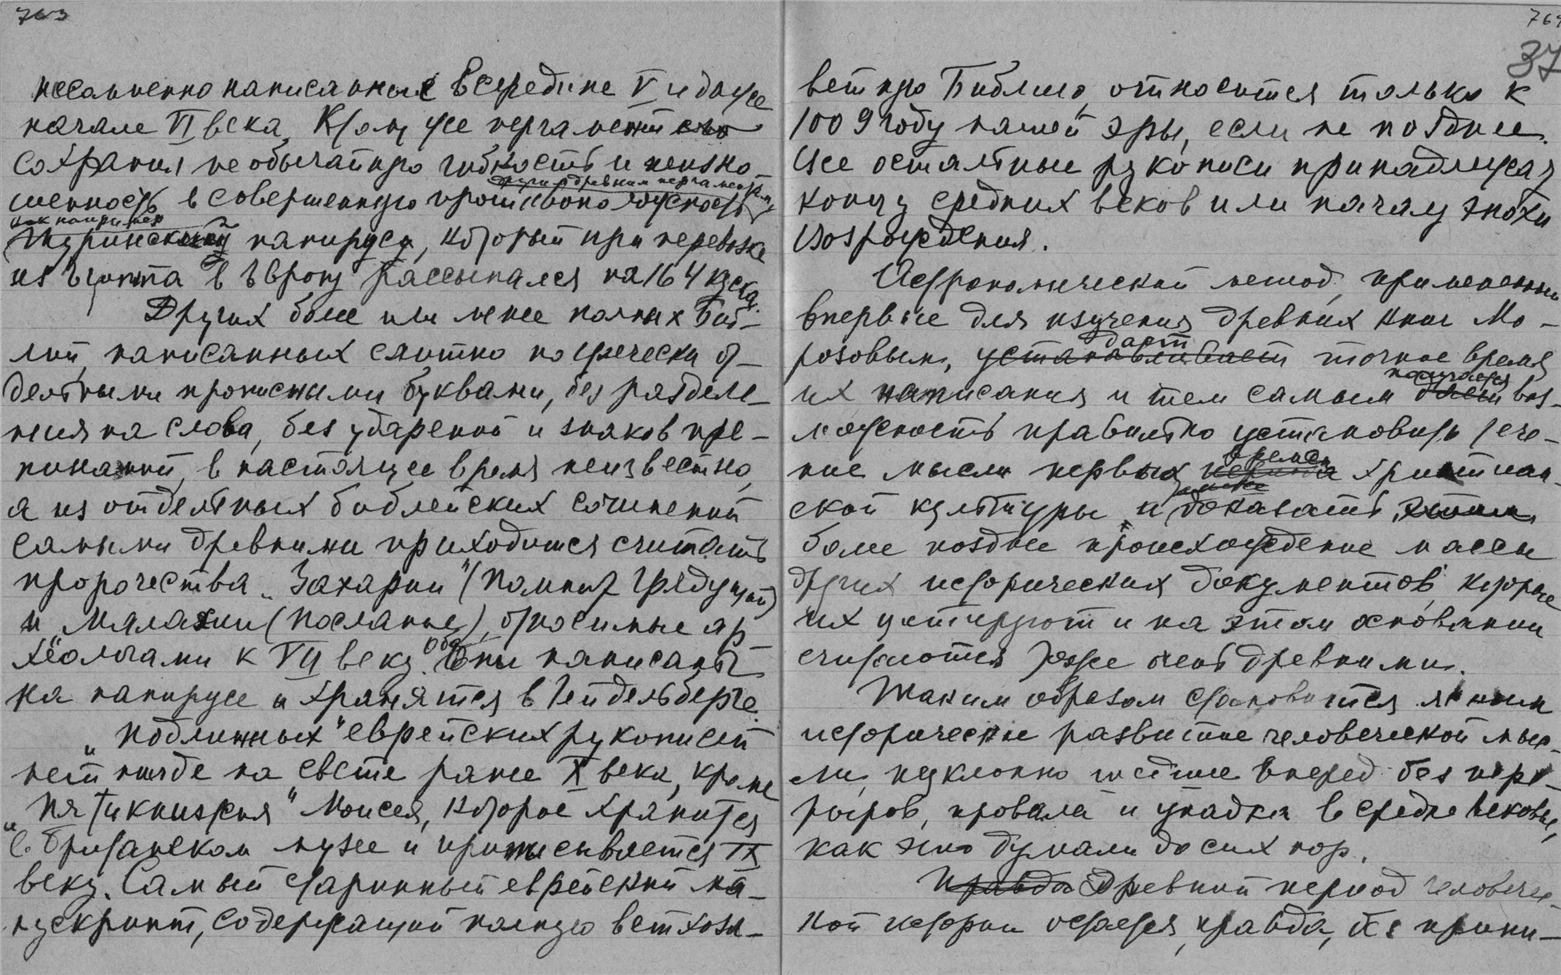 763
несомненно написанных в середине V и даже
начале VI века. К тому же пергамент его
сохранил необычайную гибкость и неизно-
шенность в совершенную противоположность
другим древним пергаментам,
как например
Туринский папирус, который при перевозке
из Египта в Европу рассыпался на 164 куска.
Других более или менее полных Биб-
лий, написанных слитно по гречески от-
дельными прописными буквами, без разделе-
ния на слова, без ударений и знаков пре-
пинаний, в настоящее время неизвестно,
а из отдельных библейских сочинений
самыми древними приходится считать
пророчества „Захарии" (Помнит Грядущий)
и Малахии (посланье), относимые ар-
хеологами к VII веку. Оба они написаны
на папирусе и хранятся в Гейдельберге.
„Подлинных" еврейских рукописей
нет нигде на свете ранее X века, кроме
„Пятикнижия" Моисея, которое хранится
в Британском музее и приписывается IX
веку. Самый старинный еврейский ма-
нускрипт, содержащий полную ветхоза-
764
37
ветную Библию, относится только к
1009 году нашей эры, если не позднее.
Все остальные рукописи принадлежат
концу средних веков или началу эпохи
Возрождения.
Астрономический метод, примененный
впервые для изучения древних книг Мо-
розовым, устанавливает дает точное время
их написания и тем самым дает получается воз-
можность правильно установить тече-
ние мысли первых периода времен христиан-
ской культуры и доказать этим
более позднее происхождение массы
других исторических документов, которые
их цитируют и на этом основании
считаются тоже очень древними.
Таким образом становится ясным
историческое развитие человеческой мыс-
ли, неуклонно шедшее вперед без пере-
рывов, провала и упадка в средневековье,
как это думали до сих пор.
Правда Древний период человечес-
кой истории остается, правда, без прини-